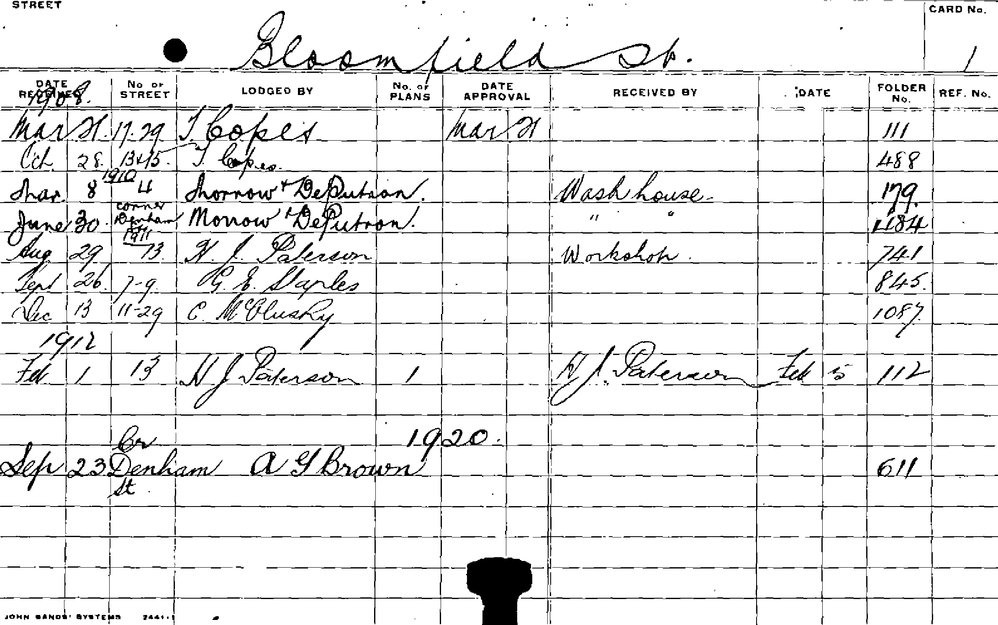 STREET
CARD No.
Bloomfield St.
1
DATE RECEIVED No OF STREET LODGED BY No. OF PLANS DATE APPROVAL RECEIVED BY DATE FOLDER No. REF. No.
1908.
Mar 21 17-29 T Copes. Mar 21 111
Oct. 28. 13+15 T Copes. 488
1910
Mar. 8 4 Morrow & DePutron. Wash house. 179.
corner
June 30. Denham Morrow & DePutron. " " 484
1911
Aug 29 13 H. J. Paterson Workshop. 741
Sept 26 7-9. G. E. Staples 845.
Dec 13 11-29 C. McClusky 1087.
1912
Feb 1 13 H J Paterson 1 H J. Paterson Feb 5 112
1920.
Cr
Sep 23 Denham A G Brown 611
St.
JOHN SANDS' SYSTEMS